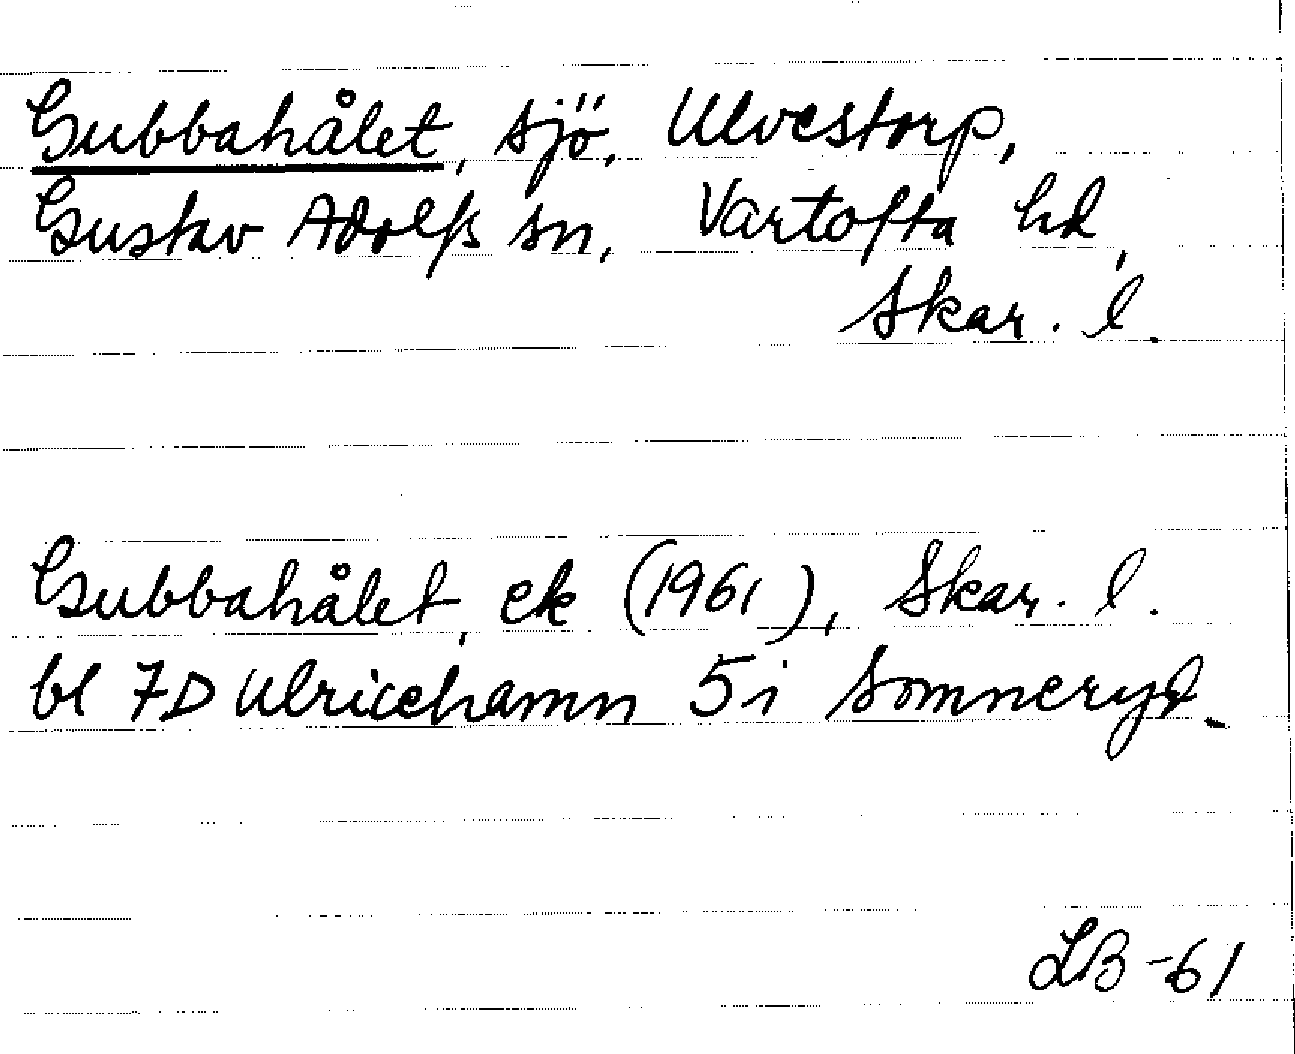 Gubbahålet, sjö, Ulvestorp,
Gustav Adolfs sn, Vartofta hd,
Skar. l.
Gubbahålet, ek (1961), Skar. l.
bl 7D Ulricehamn 5i Somneryd.
LB -61